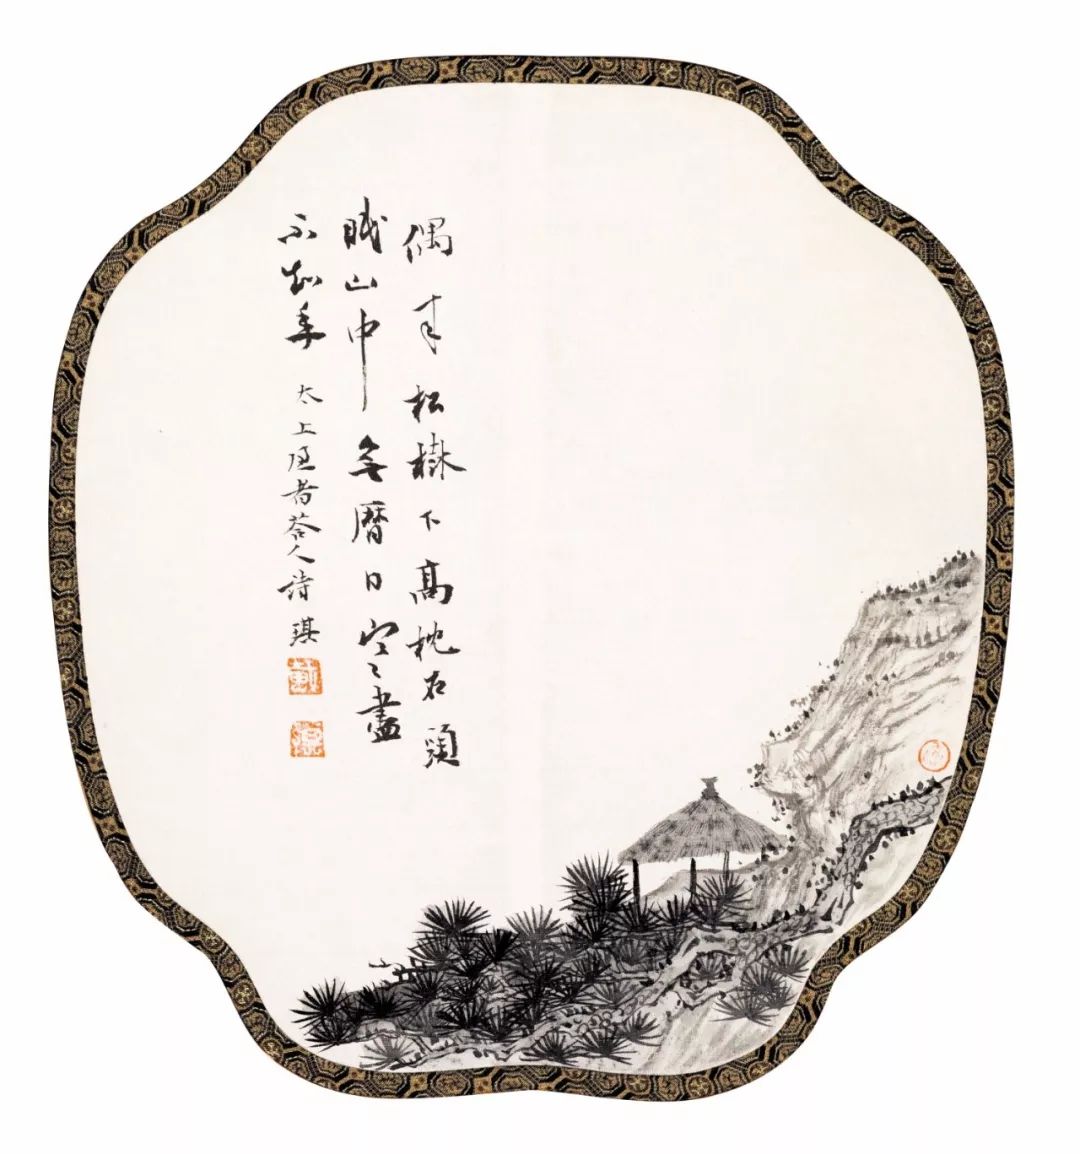 偶来松樹下高枕石頭
眠山中無曆日寒盡
不知年 太上隱者荅人詩 琪